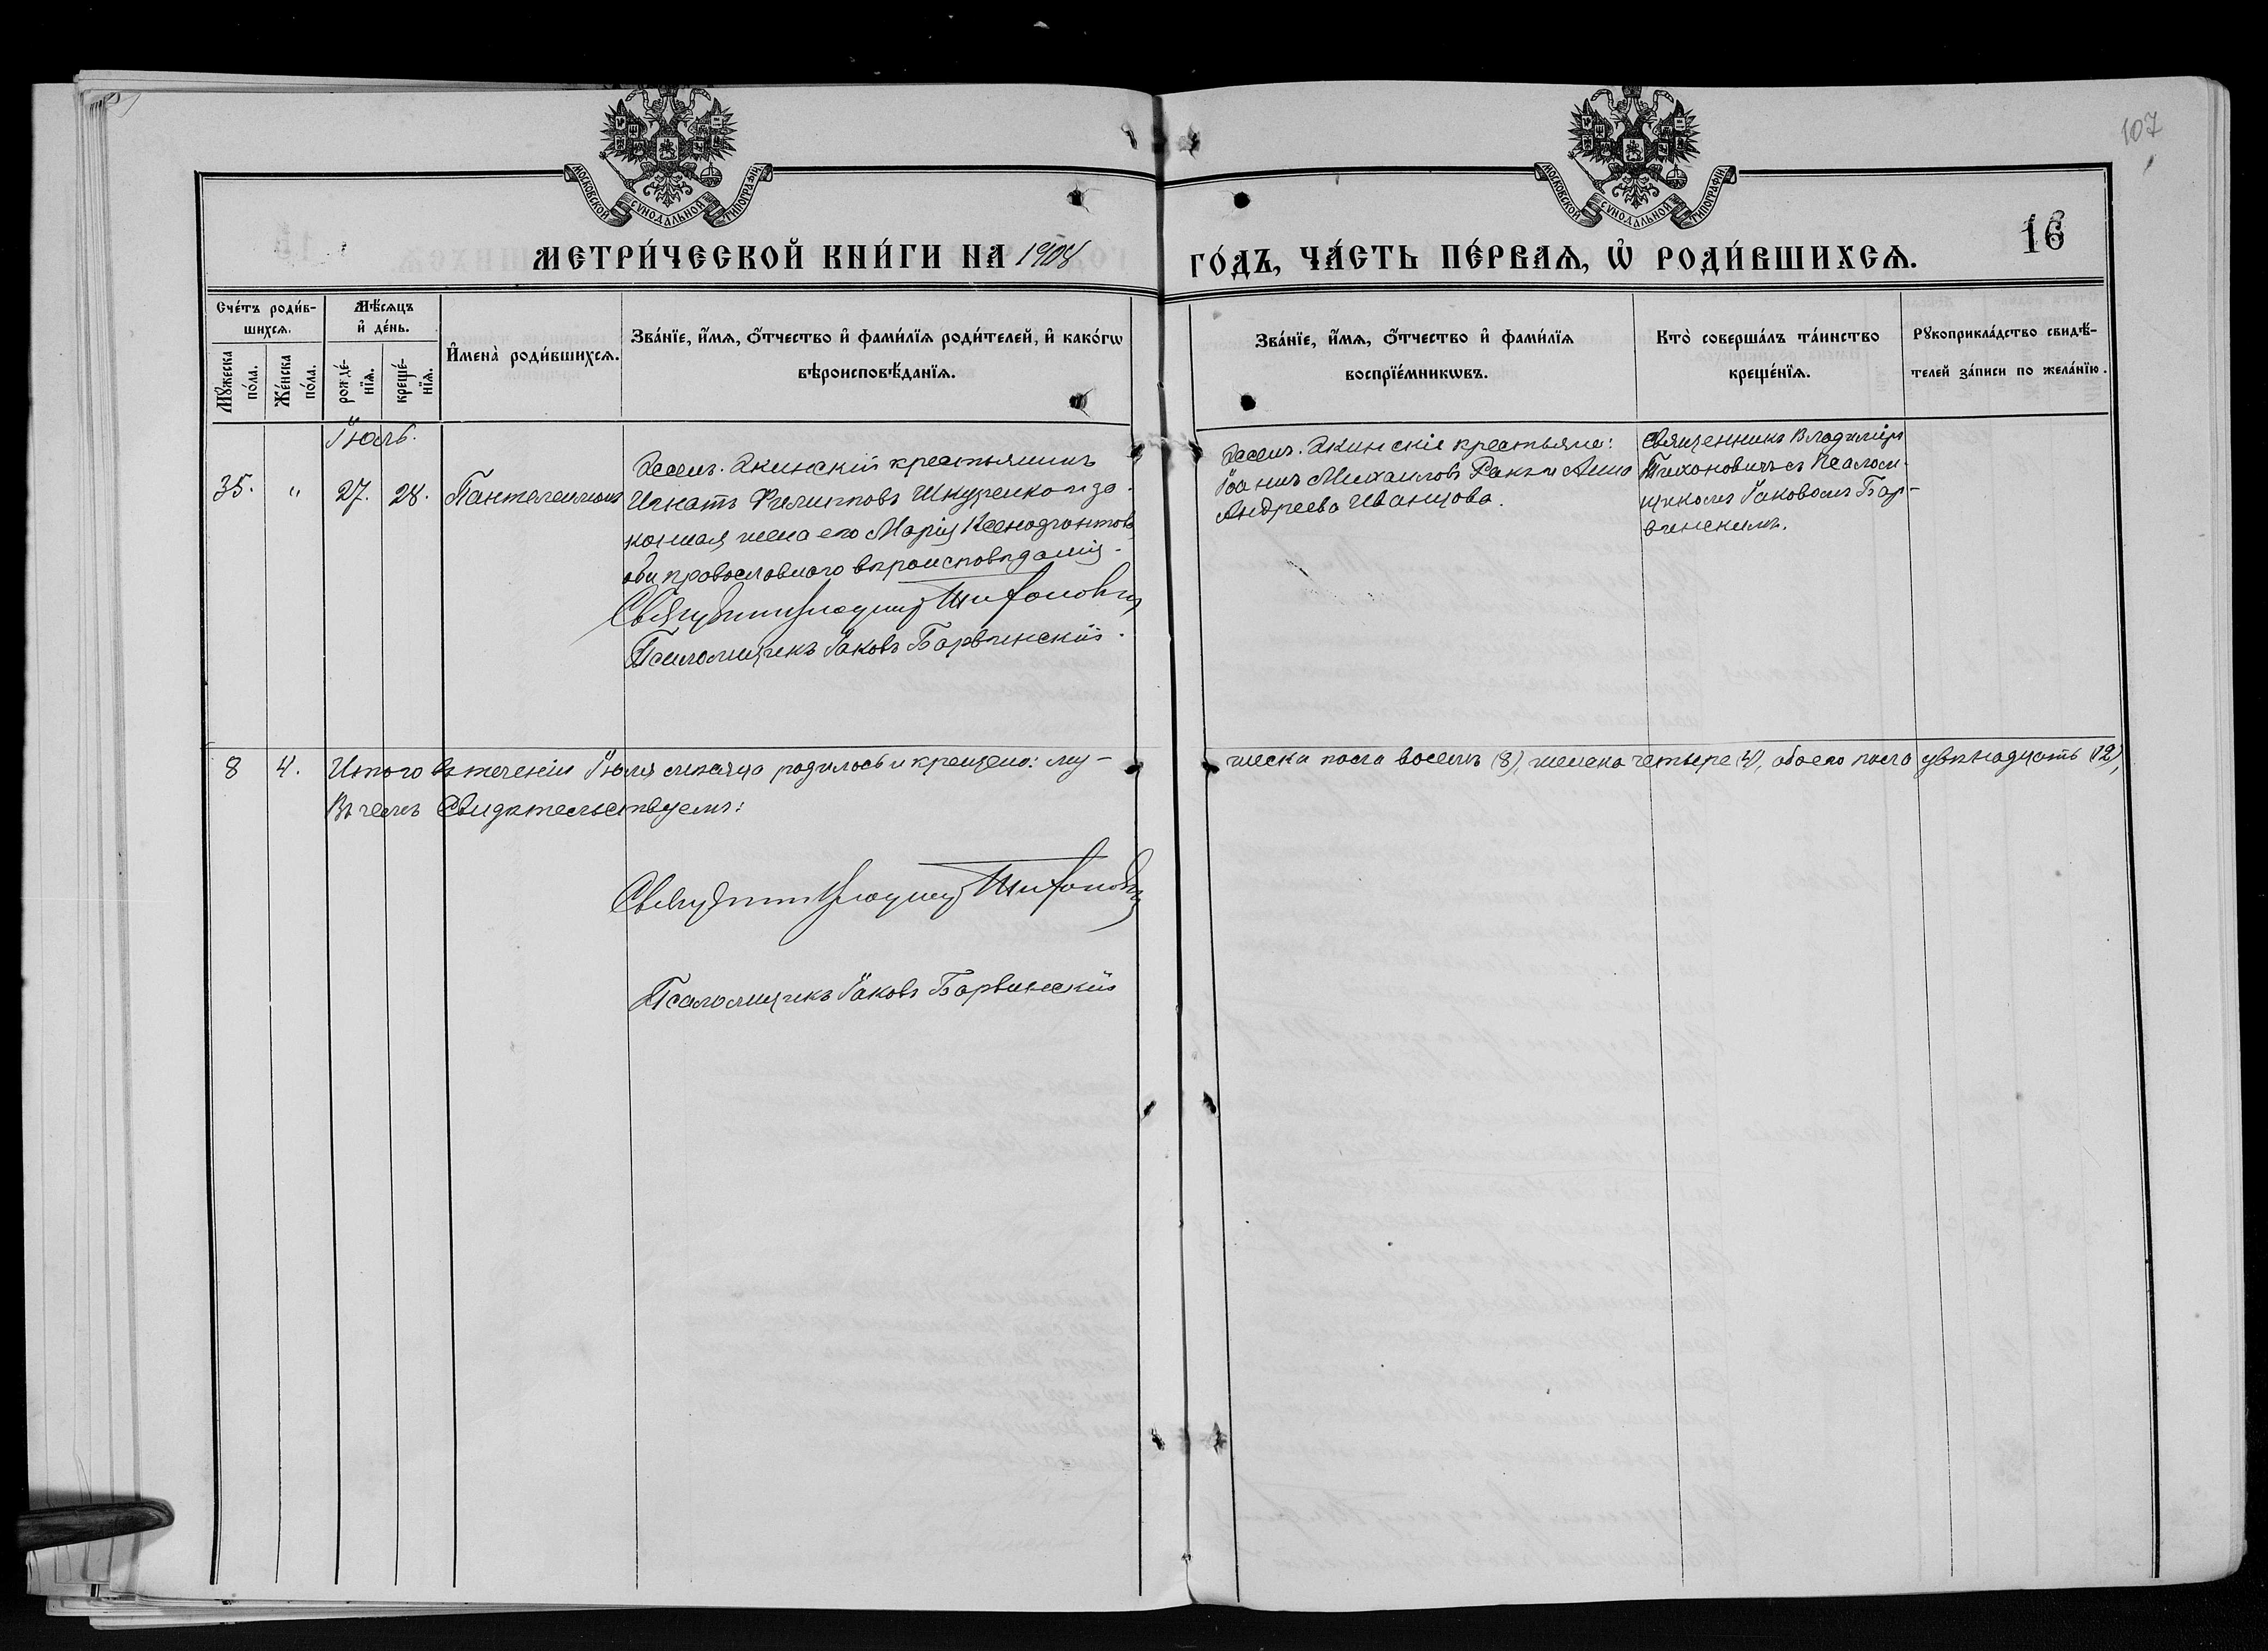 107
МОСКОВСКОЙ СѴНОДАЛЬНОЙ ТИПОГРАФІИ
МОСКОВСКОЙ СѴНОДАЛЬНОЙ ТИПОГРАФІИ
16
МЕТРИ́ЧЕСКОЙ КНИ́ГИ НА 1908 ГО́ДЪ, ЧА́СТЬ ПЕ́РВАЯ, Ѡ҆ РОДИ́ВШИХСЯ.
Сче́тъ роди́в-
шихся.
Мꙋ́жеска по́ла.
Же́нска по́ла.
Мѣ́сяцъ
и҆ де́нь.
рожде́-
нїя.
креще́-
нїя.
И҆мена̀ роди́вшихся.
Зва́нїе, и҆́мя, ѻ҆́тчество и҆ фами́лїя роди́телей, и҆ како́гѡ
вѣроисповѣ́данїя.
Зва́нїе, и҆́мя, ѻ҆́тчество и҆ фами́лїя
воспрїе́мникѡвъ.
Кто̀ соверша́лъ та́инство
креще́нїя.
Рꙋкоприкла́дство свидѣ́-
телей за́писи по жела́нїю.
Іюль.
35. " 27. 28. Пантелеимонъ
крестьянинъ
Игнатъ Филипповъ Шкуренко и за-
конная жена его Марія Ксенофонтова
оби православнаго вѣроисповѣданія.
Священникъ Владиміръ Тихоновичъ
Псаломщикъ Іаковъ Барвинскій.
крестьяне:
Іоаннъ Михаиловъ Ракъ и Анна
Андреева Иванцова.
Священникъ Владиміръ
Тихоновичъ съ Псалом-
щикомъ Іаковомъ Бар-
винскимъ.
8 4. Итого въ теченіи Іюля мѣсяца родилось и крещено: му-
жеска пола восемь (8), женска четыре (4), обоего пола двѣнадцать (12),
Въ чемъ Свидѣтельствуемъ:
Священникъ Владиміръ Тихоновичъ
Псаломщикъ Іаковъ Барвинскій